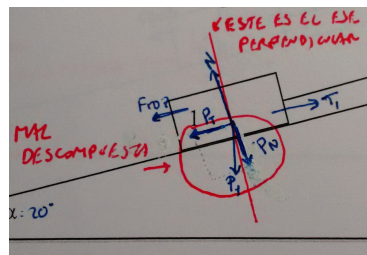 ESTE ES EL EJE
PERPENDICULAR
N
FROZ
T1
PT
MAL
DESCOMPUESTA
PN
P1
α = 20°